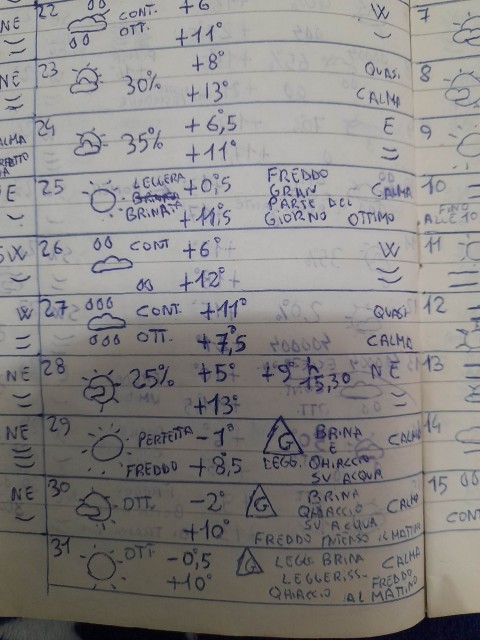 22 CONT. +6 W
OTT. +11°
23 +8° QUASI
30% +13° CALMA
24 +6,5 E
35% +11°
25 LEGGERA +0,5 FREDDO
GRAN CALMA
BRINATA PARTE DEL
+11,5 GIORNO OTTIMO
26 CONT +6° W
+12°
27 CONT. +11° QUASI
OTT. +7,5 CALMA
28 25% +5° +9° h 15,30 NE
+13°
29 PERFETTA -1° G BRINA CALMA
E
FREDDO +8,5 LEGG. GHIACCIO
SU ACQUA
30 OTT. -2° G BRINA CALMA
GHIACCIO
+10° SU ACQUA
FREDDO INTENSO IL MATTINO
31 OTT -0,5 G LEGG. BRINA CALMA
+10° LEGGERISS. FREDDO
GHIACCIO AL MATTINO
NE
NE
W
NE
NE
NE
7
8
9
10
FINO
ALLE 10
11
12
13
14
15
CONT